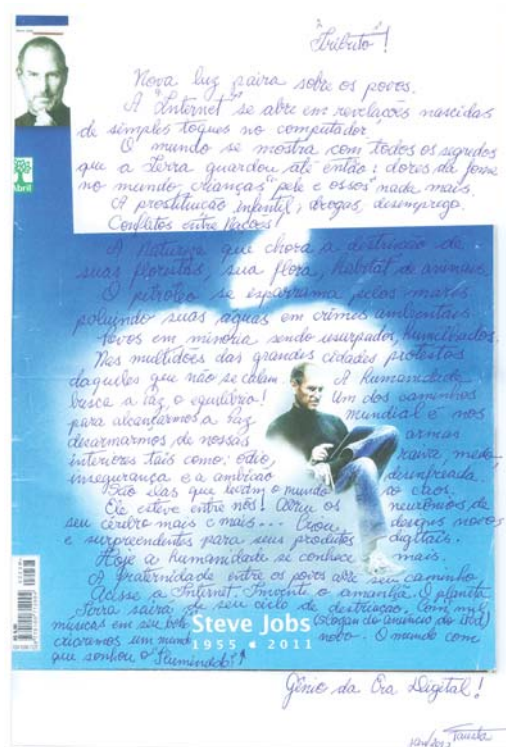 "Tributo"!
Nova luz paira sobre os povos.
A "Internet" se abre em revelações nascidas
de simples toques no computador.
O mundo se mostra com todos os segredos
que a Terra guardou até então: dores da fome
no mundo, crianças "pele e ossos" nada mais.
A prostituição infantil, drogas, desemprego.
Conflitos entre Nações!
A Natureza que chora a destruição de
suas florestas, sua flora, habitat de animais.
O petróleo se esparrama pelos mares
poluindo suas águas em crimes ambientais.
Povos em minoria sendo usurpados, humilhados.
Nas multidões das grandes cidades protestos
daqueles que não se calam. A humanidade
busca a paz, o equilíbrio! Um dos caminhos
para alcançarmos a Paz mundial é nos
desarmarmos de nossas armas
interiores tais como: ódio, raiva, medo,
insegurança e a ambição desenfreada.
São elas que levam o mundo ao caos.
Ele esteve entre nós! Abriu os neurônios de
seu cérebro mais e mais... Criou designs novos
e surpreendentes para seus produtos digitais.
Hoje a humanidade se conhece mais.
A fraternidade entre os povos abre seu caminho.
Acesse a Internet. Invente o amanhã. O planeta
Terra sairá de seu ciclo de destruição. Com mil
músicas em seu bolso (slogan do anúncio do iPod)
criaremos um mundo novo. O mundo com
que sonhou o "Iluminado"!
Gênio da Era Digital!
Fausta
Abril
Steve Jobs
1955 • 2011